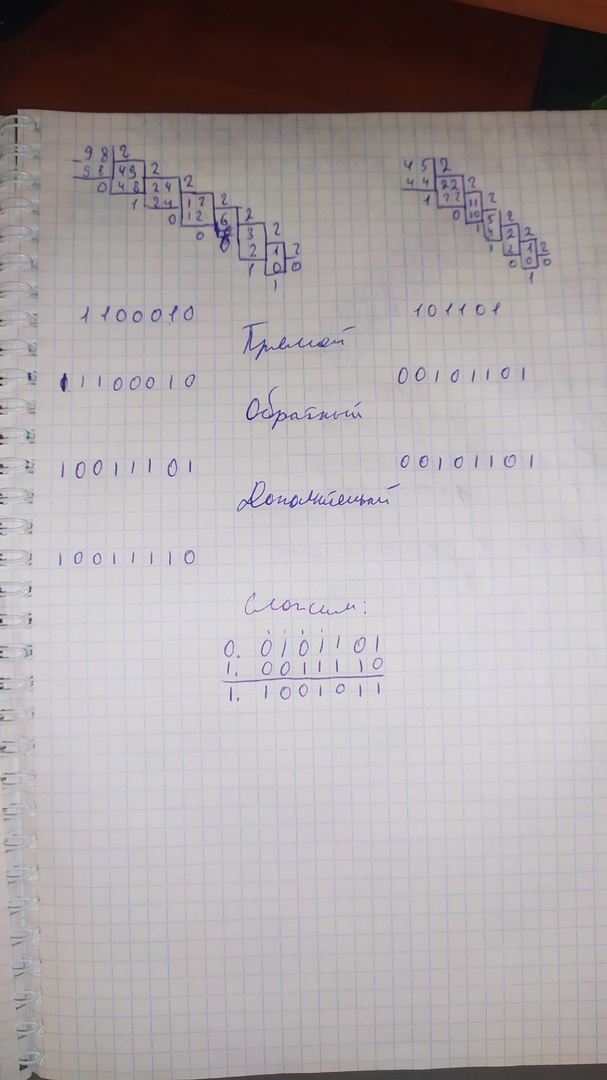 98 2 45 2
98 49 2 44 22 2
0 48 24 2 1 22 11 2
1 24 12 2 0 10 5 2
0 12 6 2 1 4 2 2
0 6 3 2 1 2 1 2
0 2 1 2 0 0 0
1 0 0 1
1
1100010 101101
Прямой
11100010 00101101
Обратный
10011101 00101101
Дополнительный
10011110
Сложим:
0. 0101101
1. 0011110
1. 1001011